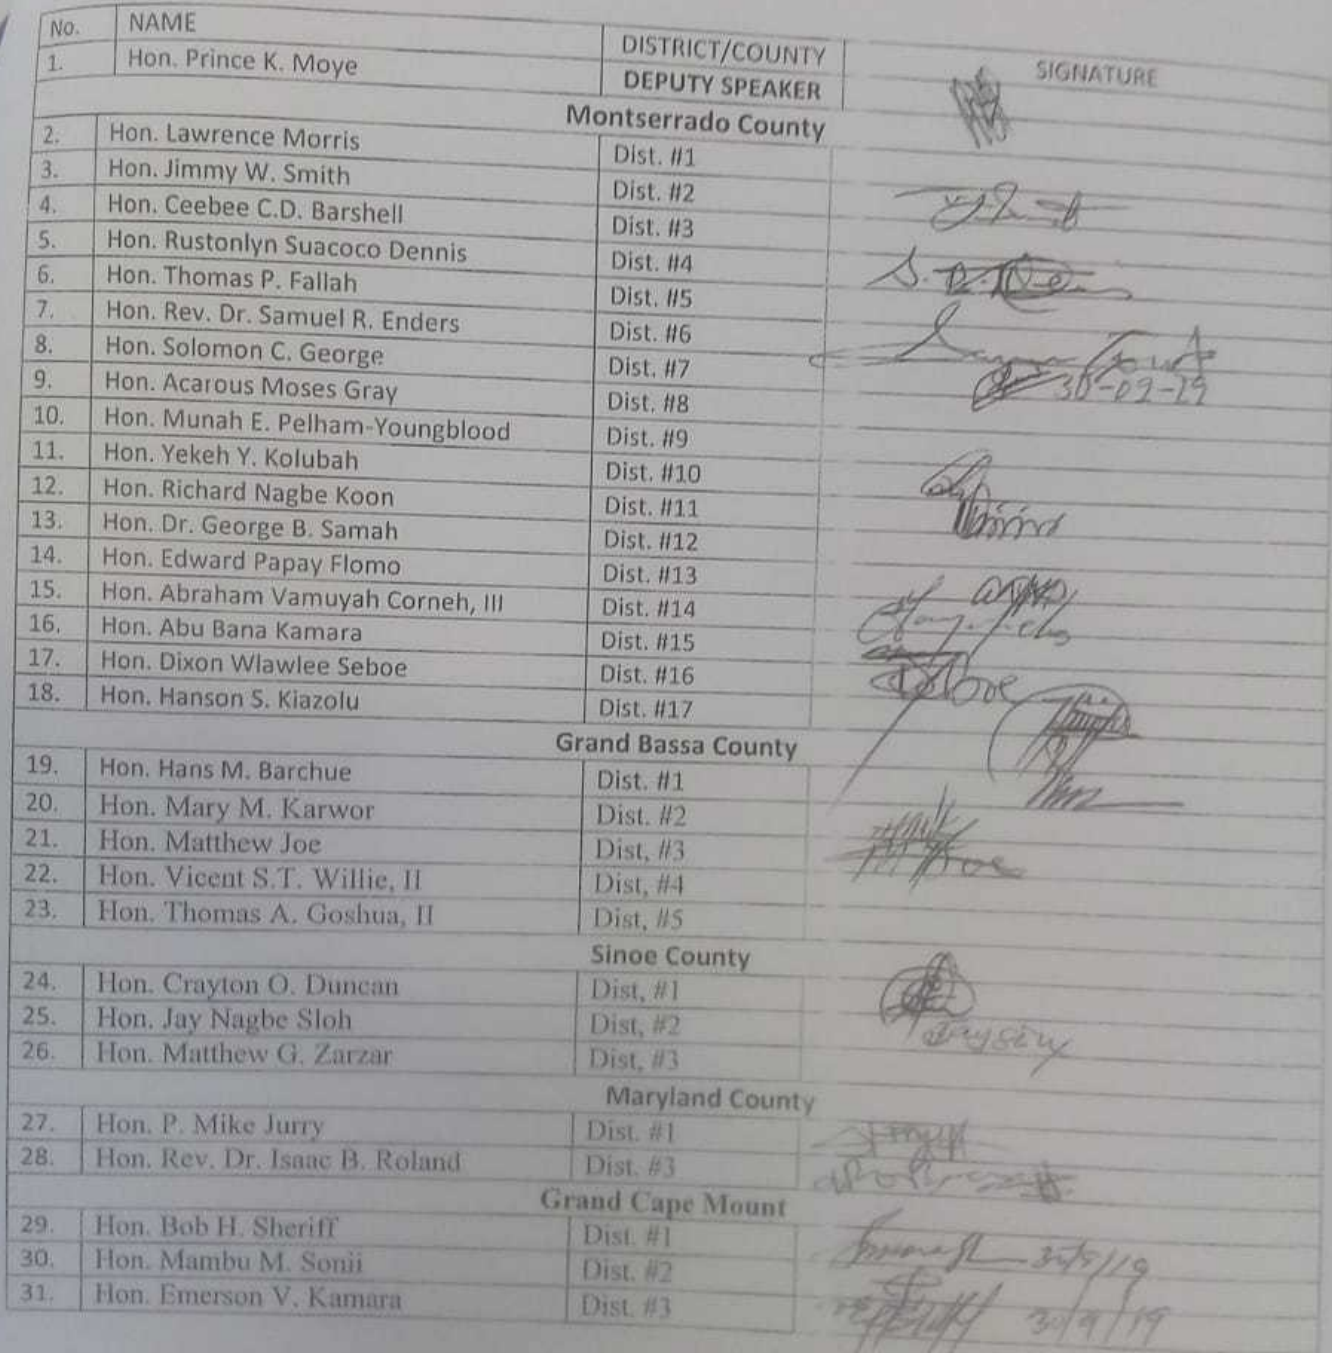 No. NAME DISTRICT/COUNTY SIGNATURE
1. Hon. Prince K. Moye DEPUTY SPEAKER
Montserrado County
2. Hon. Lawrence Morris Dist. #1
3. Hon. Jimmy W. Smith Dist. #2
4. Hon. Ceebee C.D. Barshell Dist. #3
5. Hon. Rustonlyn Suacoco Dennis Dist. #4
6. Hon. Thomas P. Fallah Dist. #5
7. Hon. Rev. Dr. Samuel R. Enders Dist. #6
8. Hon. Solomon C. George Dist. #7
9. Hon. Acarous Moses Gray Dist. #8 30-09-19
10. Hon. Munah E. Pelham-Youngblood Dist. #9
11. Hon. Yekeh Y. Kolubah Dist. #10
12. Hon. Richard Nagbe Koon Dist. #11
13. Hon. Dr. George B. Samah Dist. #12
14. Hon. Edward Papay Flomo Dist. #13
15. Hon. Abraham Vamuyah Corneh, III Dist. #14
16. Hon. Abu Bana Kamara Dist. #15
17. Hon. Dixon Wlawlee Seboe Dist. #16
18. Hon. Hanson S. Kiazolu Dist. #17
Grand Bassa County
19. Hon. Hans M. Barchue Dist. #1
20. Hon. Mary M. Karwor Dist. #2
21. Hon. Matthew Joe Dist, #3
22. Hon. Vicent S.T. Willie, II Dist, #4
23. Hon. Thomas A. Goshua, II Dist, #5
Sinoe County
24. Hon. Crayton O. Duncan Dist, #1
25. Hon. Jay Nagbe Sloh Dist, #2
26. Hon. Matthew G. Zarzar Dist, #3
Maryland County
27. Hon. P. Mike Jurry Dist. #1
28. Hon. Rev. Dr. Isaac B. Roland Dist. #3
Grand Cape Mount
29. Hon. Bob H. Sheriff Dist. #1
30. Hon. Mambu M. Sonii Dist. #2 30/9/19
31. Hon. Emerson V. Kamara Dist. #3 30/9/19